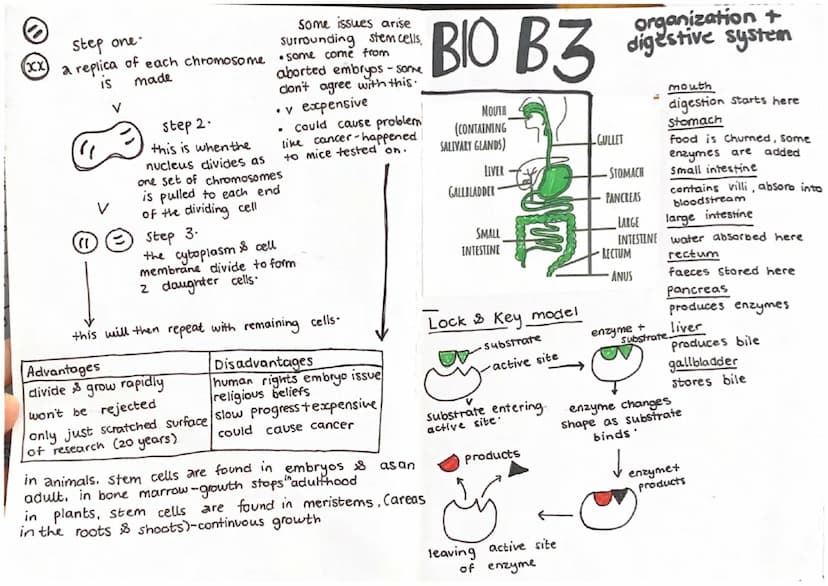 Step one.
a replica of each chromosome
is made
Step 2.
this is when the
nucleus divides as
one set of chromosomes
is pulled to each end
of the dividing cell
Step 3.
the cytoplasm & cell
membrane divide to form
2 daughter cells.
this will then repeat with remaining cells.
Some issues arise
surrounding stem cells,
• some come from
aborted embryos - some
don't agree with this.
• v expensive
• could cause problem
like cancer - happened
to mice tested on.
Advantages
divide & grow rapidly
won't be rejected
only just scratched surface
of research (20 years)
Disadvantages
human rights embryo issue
religious beliefs
slow progress + expensive
could cause cancer
in animals, stem cells are found in embryos & as an
adult, in bone marrow - growth stops in adulthood
in plants, stem cells are found in meristems, (areas
in the roots & shoots) - continuous growth
BIO B3
organization +
digestive system
MOUTH
(CONTAINING
SALIVARY GLANDS)
GULLET
LIVER
STOMACH
GALLBLADDER
PANCREAS
SMALL
INTESTINE
LARGE
INTESTINE
RECTUM
ANUS
mouth
digestion starts here
stomach
food is churned, some
enzymes are added
small intestine
contains villi, absorb into
bloodstream
large intestine
water absorbed here
rectum
faeces stored here
pancreas
produces enzymes
liver
produces bile
gallbladder
stores bile
Lock & Key model
substrate
active site
substrate entering
active site.
enzyme +
substrate
enzyme changes
shape as substrate
binds.
enzyme+
products
products
leaving active site
of enzyme